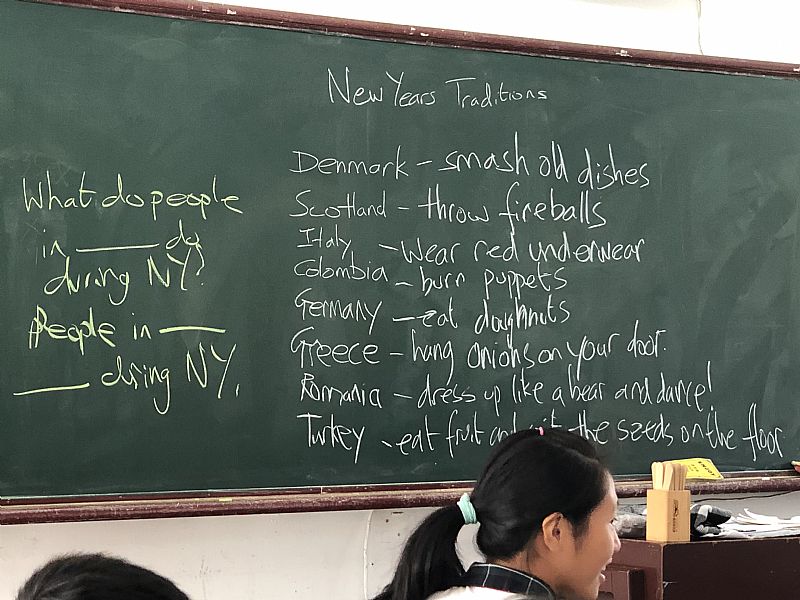 New Years Traditions
What do people
in ______ do
during NY?
People in ____
____ during NY.
Denmark - smash old dishes
Scotland - throw fireballs
Italy - wear red underwear
Colombia - burn puppets
Germany - eat doughnuts
Greece - hang onions on your door.
Romania - dress up like a bear and dance!
Turkey - eat fruit and the seeds on the floor